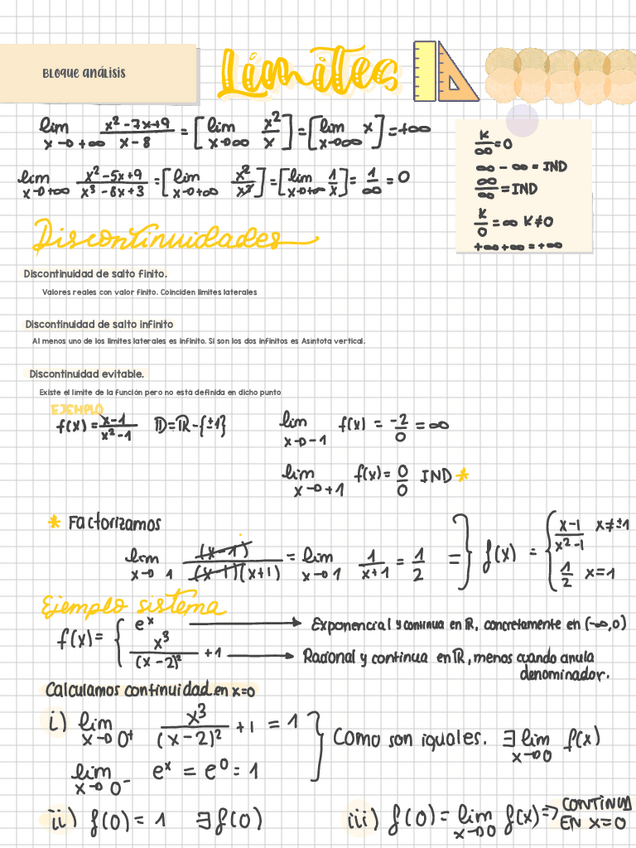 BLOQUE ANÁLISIS
Límites
lim x→+∞ x²-7x+9 / x-8 = [lim x→∞ x²/x] = [lim x→∞ x] = +∞
K/∞ = 0
∞ - ∞ = IND
∞/∞ = IND
K/0 = ∞ K≠0
+∞+∞ = +∞
lim x→+∞ x²-5x+9 / x³-6x+3 = [lim x→+∞ x²/x³] = [lim x→+∞ 1/x] = 1/∞ = 0
Discontinuidades
Discontinuidad de salto finito.
Valores reales con valor finito. Coinciden límites laterales
Discontinuidad de salto infinito
Al menos uno de los límites laterales es infinito. Si son los dos infinitos es Asíntota vertical.
Discontinuidad evitable.
Existe el límite de la función pero no está definida en dicho punto
EJEMPLO
f(x) = x-1 / x²-1 D=ℝ-{±1} lim x→-1 f(x) = -2/0 = ∞
lim x→+1 f(x) = 0/0 IND *
* Factorizamos
lim x→1 (x-1) / (x-1)(x+1) = lim x→1 1/x+1 = 1/2 = } f(x) = { x-1 / x²-1 x≠±1
1/2 x=1
Ejemplo sistema
f(x) = { eˣ → Exponencial y continua en ℝ, concretamente en (-∞,0)
x³ / (x-2)² +1 → Racional y continua en ℝ, menos cuando anula
denominador.
Calculamos continuidad en x=0
i) lim x→0⁺ x³ / (x-2)² +1 = 1 }
Como son iguales. ∃ lim x→0 f(x)
lim x→0⁻ eˣ = e⁰ = 1
ii) f(0) = 1 ∃ f(0) iii) f(0) = lim x→0 f(x) ⇒ CONTINUA
EN X=0